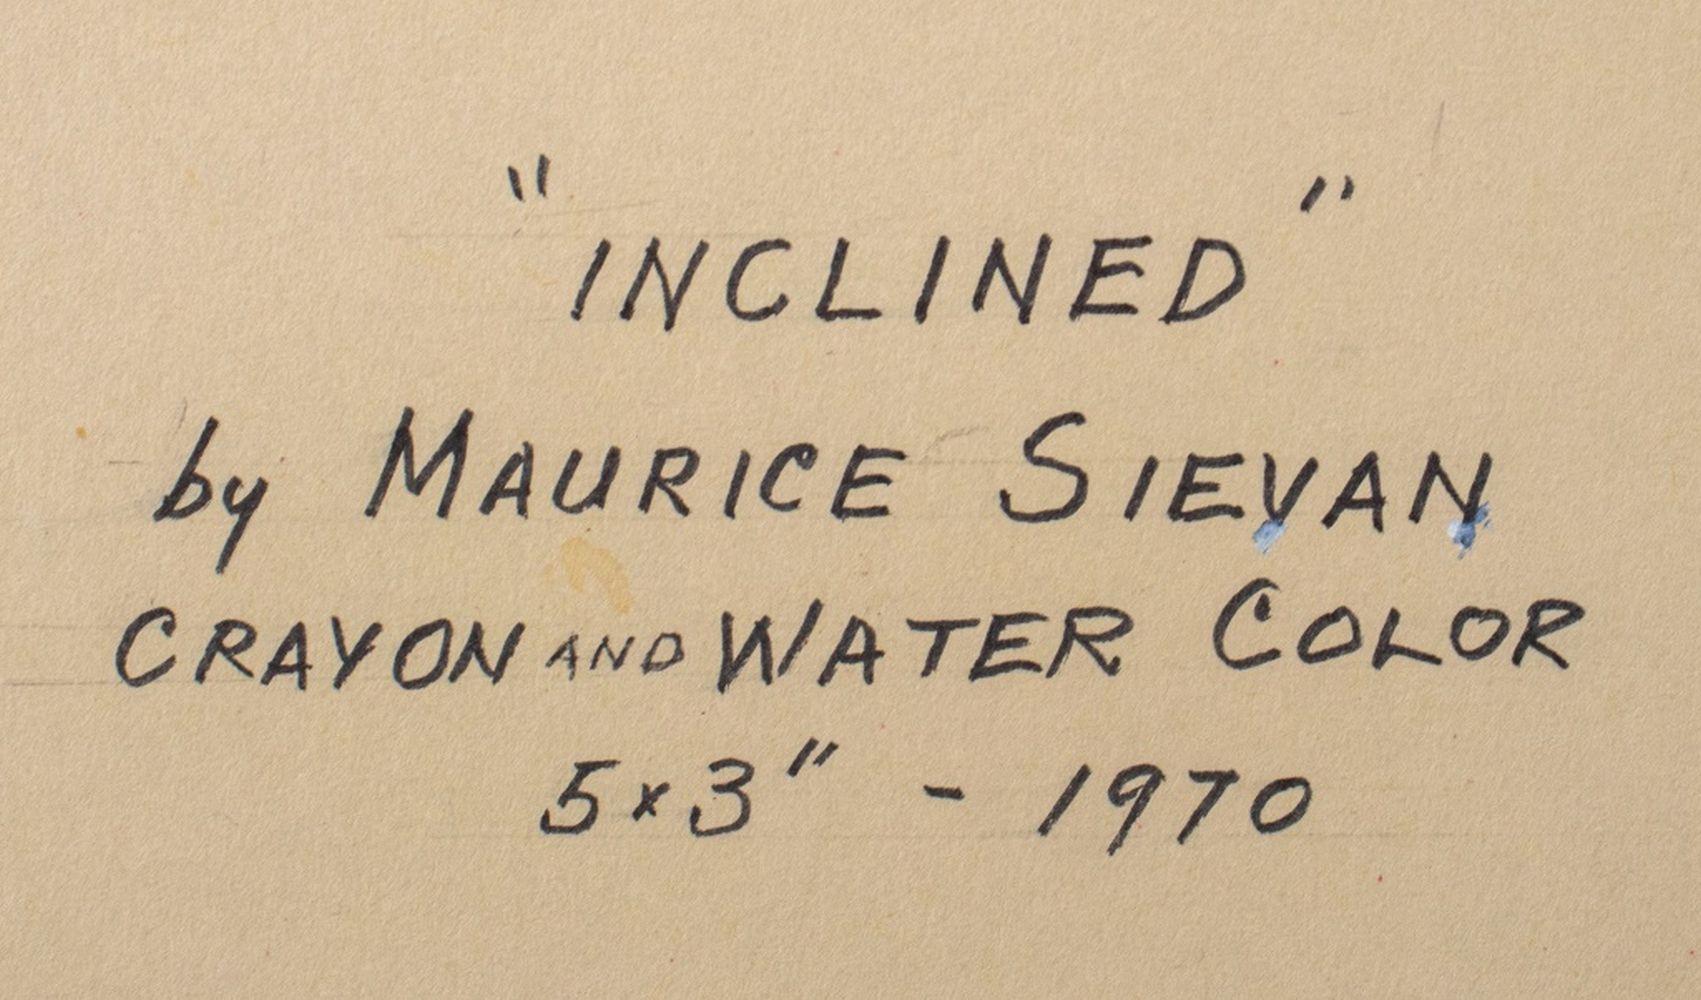 "INCLINED"
by MAURICE SIEVAN
CRAYON AND WATER COLOR
5x3" - 1970